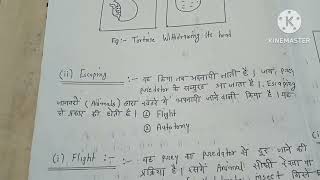 KINEMASTER
Eg:- Tortoise Withdrawing its head
(ii) Escaping :- यह क्रिया तब अपनायी जाती है। जब, prey
predator के सम्मुख आ जाता है। Escaping
जानवरों (Animals) द्वारा बचने में अपनायी जाने वाली क्रिया है। यह
दो प्रकार की होती है। ① Flight
② Autotomy
(i) Flight :- यह prey का predator से दूर जाने की
प्रक्रिया है। इसमें Animal सीधी रेखा या
insect